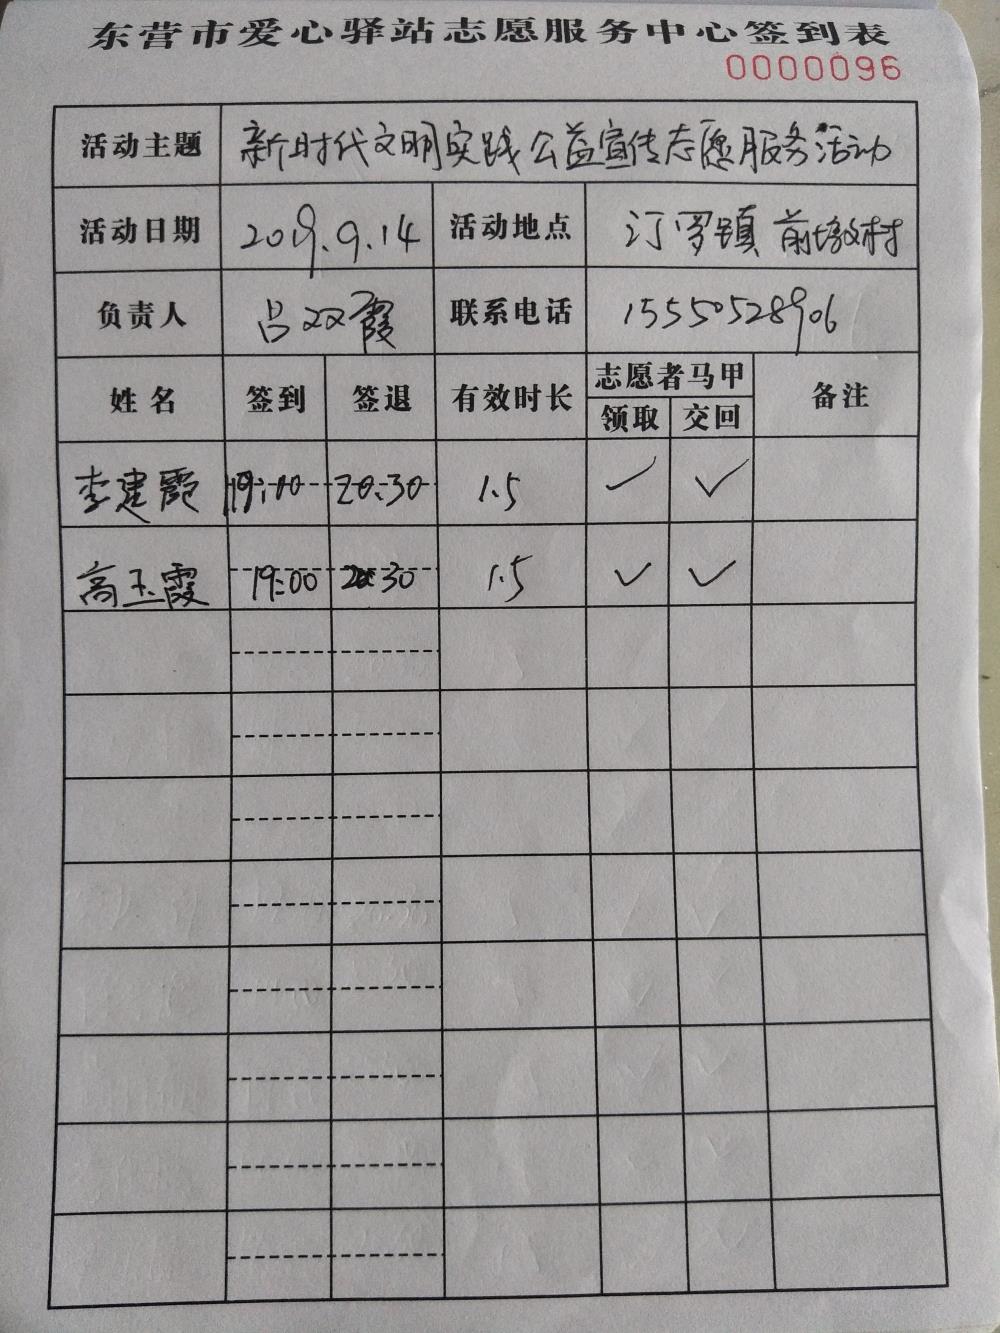 东营市爱心驿站志愿服务中心签到表
0000096
活动主题 新时代文明实践公益宣传志愿服务活动
活动日期 2019.9.14 活动地点 汀罗镇前墩村
负责人 吕双霞 联系电话 15550528906
姓名 签到 签退 有效时长 志愿者马甲 备注
领取 交回
李建霞 19:00 20:30 1.5 ✓ ✓
高玉霞 19:00 20:30 1.5 ✓ ✓